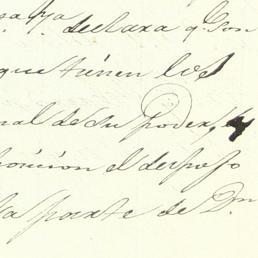 declara q. son
que tienen los
nal de su poder, y
posicion el despojo
la parte de Dn